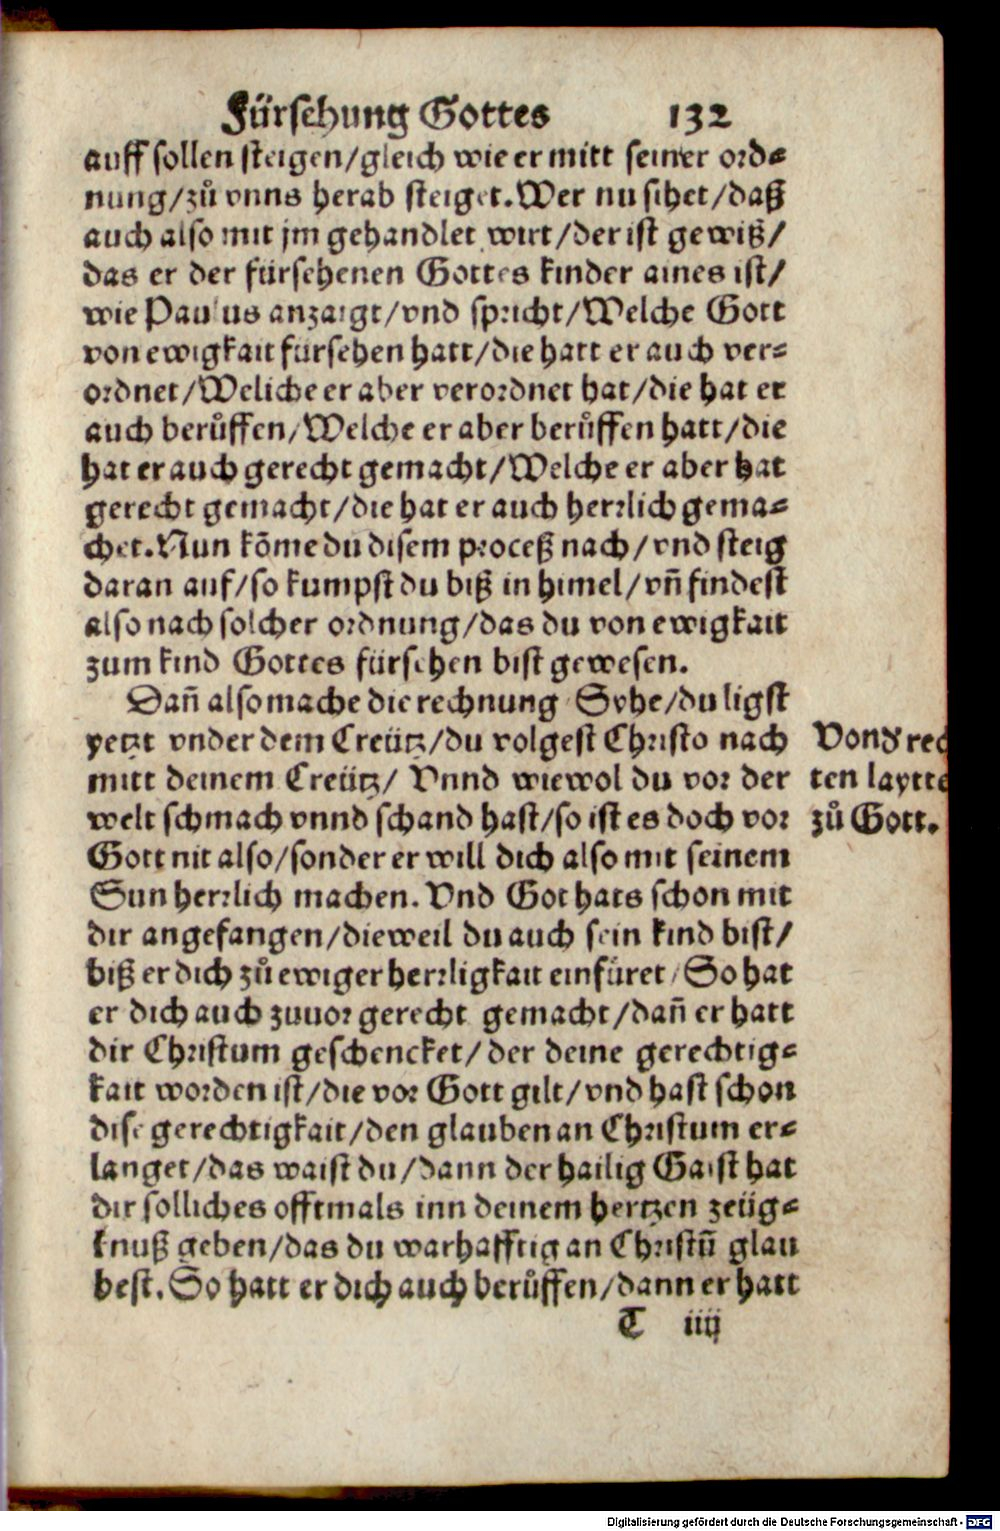 Fürsehung Gottes 132
auff sollen steigen/gleich wie er mitt seiner ord⸗
nung/zů vnns herab steiget. Wer nu sihet/daß
auch also mit jm gehandlet wirt/der ist gewiß/
das er der fürsehenen Gottes kinder aines ist/
wie Paulus anzaigt/vnd spricht/Welche Gott
von ewigkait fürsehen hatt/die hatt er auch ver⸗
ordnet/Weliche er aber verordnet hat/die hat er
auch berůffen/Welche er aber berůffen hatt/die
hat er auch gerecht gemacht/Welche er aber hat
gerecht gemacht/die hat er auch herrlich gema⸗
chet. Nun kõme du disem proceß nach/vnd steig
daran auf/so kumpst du biß in himel/vñ findest
also nach solcher ordnung/das du von ewigkait
zum kind Gottes fürsehen bist gewesen.
Dañ also mache die rechnung Syhe/du ligst
yetzt vnder dem Creütz/du volgest Christo nach
mitt deinem Creütz/ Vnnd wiewol du vor der
welt schmach vnnd schand hast/so ist es doch vor
Gott nit also/sonder er will dich also mit seinem
Sun herrlich machen. Vnd Got hats schon mit
dir angefangen/dieweil du auch sein kind bist/
biß er dich zů ewiger herrligkait einfüret/So hat
er dich auch zuuor gerecht gemacht/dañ er hatt
dir Christum geschencket/der deine gerechtig⸗
kait worden ist/die vor Gott gilt/vnd hast schon
dise gerechtigkait/den glauben an Christum er⸗
langet/das waist du/dann der hailig Gaist hat
dir solliches offtmals inn deinem hertzen zeüg⸗
knuß geben/das du warhafftig an Christũ glau
best. So hatt er dich auch berůffen/dann er hatt
T iiij
Von d rec
ten laytte
zů Gott.
Digitalisierung gefördert durch die Deutsche Forschungsgemeinschaft - DFG